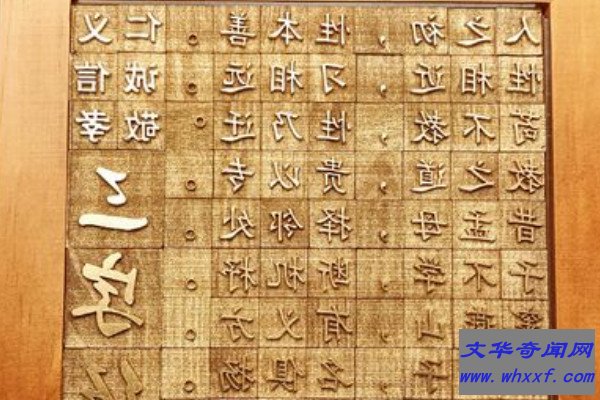 人之初，性本善。
性相近，习相远。
苟不教，性乃迁。
教之道，贵以专。
昔孟母，择邻处。
子不学，断机杼。
窦燕山，有义方。
子，名俱扬。
仁义
诚信
敬孝
三字经
文华奇闻网
www.whxxf.com